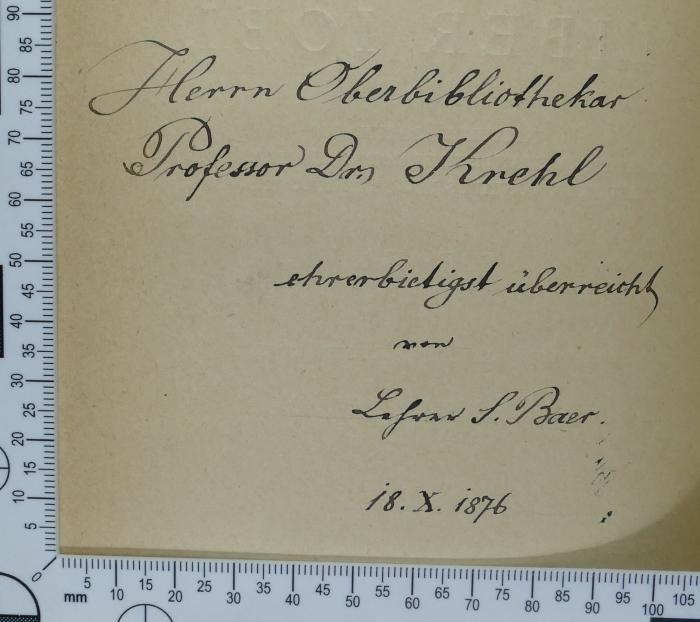 LIBER JOBI
Herrn Oberbibliothekar
Professor Dr. Krehl
ehrerbietigst überreicht
von
Lehrer S. Baer.
18. X. 1876
90
85
80
75
70
65
60
55
50
45
40
35
30
25
20
15
10
5
0
mm 5 10 15 20 25 30 35 40 45 50 55 60 65 70 75 80 85 90 95 100 105